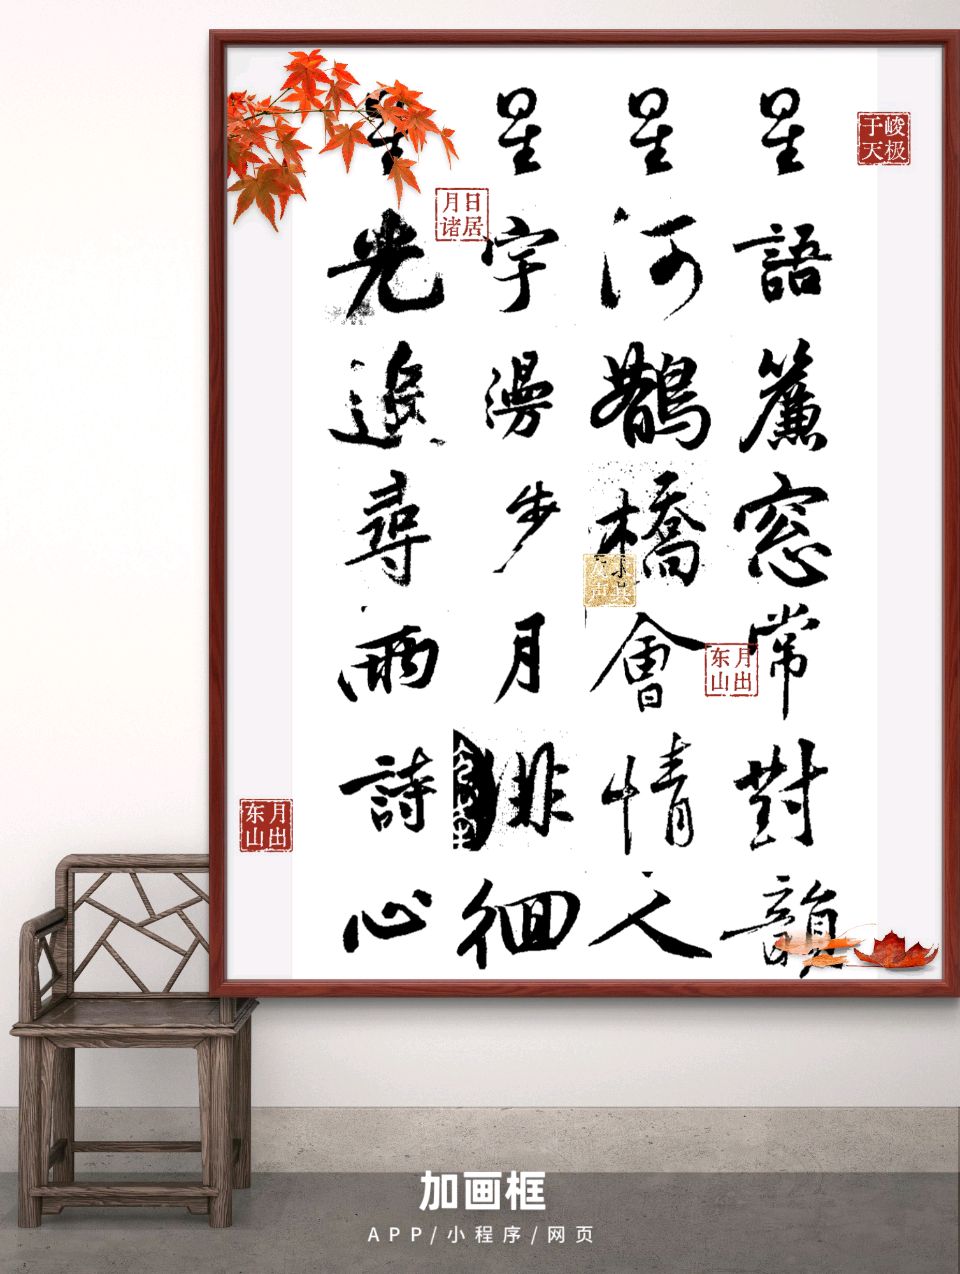 星語簾窓常對韻
星河鵲橋會情人
星宇漫步月徘徊
星光追尋雨詩心
峻极于天
日居月诸
月出东山
月出东山
加画框
APP/小程序/网页